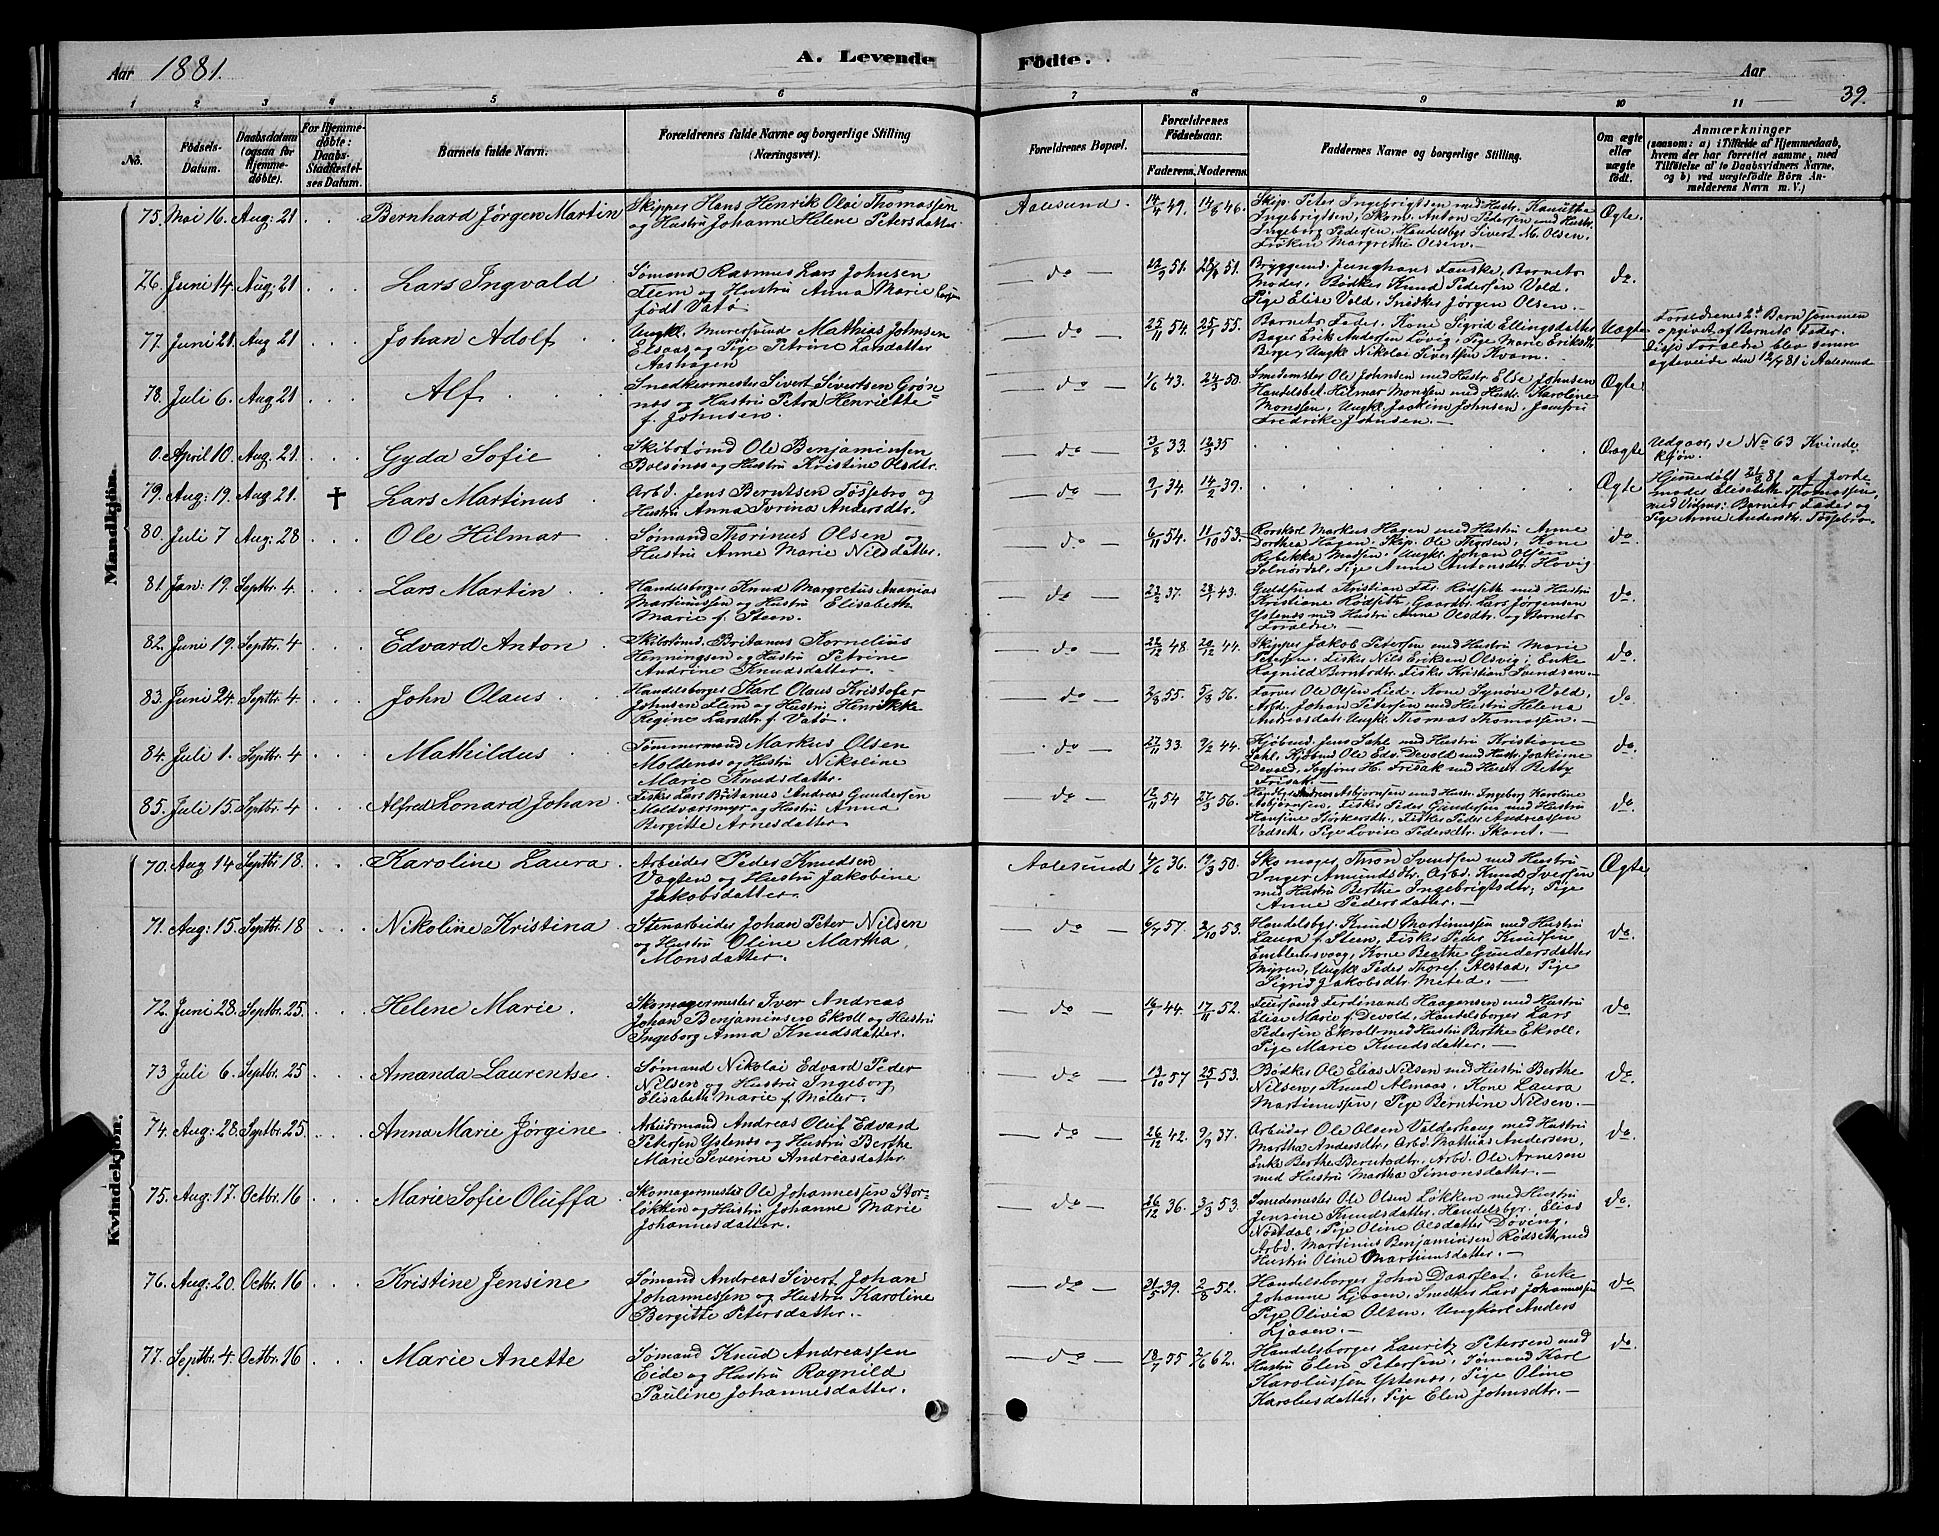 Aar 1881.
A. Levende Födte.
Aar
39.
1 2 3 4 5 6 7 8 9 10 11
No.
Födsels-Datum.
Daabsdatum (ogsaa for Hjemme-döbte).
For Hjemme-döbte: Daabs-Stadfæstel-ses Datum.
Barnets fulde Navn.
Forældrenes fulde Navne og borgerlige Stilling (Næringsvei).
Forældrenes Bopæl.
Forældrenes Födselsaar.
Faderens. Moderens.
Faddernes Navne og borgerlige Stilling.
Om ægte eller uægte födt.
Anmærkninger
(saasom: a) i Tilfælde af Hjemmedaab, hvem der har forrettet samme, med Tilföielse af to Daabsvidners Navne, og b) ved uægtefödte Börn Anmelderens Navn m. V.)
Mandkjön.
75. Mai 16. Aug: 21 Bernhard Jørgen Martin
Skipper Hans Henrik Olai Thomassen
og Hustru Johanne Helene Petersdatter
Aalesund. 14/4 49. 14/8 46.
Skip. Peter Ingebrigtsen med Hustr. Kanutha
Ingebrigtsen, Skom. Anton Pedersen med Hustr.
Ingeborg Pedersen, Handelsbgr Sivert M. Olsen,
Frøken Margrethe Olsen.
Ægte.
76. Juni 14. Aug. 21 Lars Ingvald
Sømand Rasmus Lars Johnsen
Flem og Hustru Anna Marie Larsen
født Vatø
do 51. 51.
Junghans Fauske, Barnets
Moder, Bødker Knud Pedersen Vold,
Pige Elise Vold, Snedker Jørgen Olsen.
do.
77. Juni 21. Aug 21 Johan Adolf
Ungkl. Murersvend Mathias Johnsen
Elsaas og Pige Petrine Larsdatter
Aashagen
do 25/11 54. 25/1 55.
Barnets Fader, Kone Sigrid Ellingsdatter
Bager Erik Andersen Løvig, Pige Marie Eriksdtr
Berge, Ungkl Nikolai Sivertsen Kvam.
Uægte
Forældrenes 2det Barn sammen
opgivet af Barnets Fader.
Disse Forældre blev senere
ægteviede den 12/ 81 i Aalesund
78. Juli 6. Aug 21 Alf
Snedkermester Sivert Sivertsen Grøn-
nes og Hustru Petra Henriette
f. Johnsen.
do 1/6 43. 24/3 50.
Smedemster Ole Johnsen med Hustr. Else Johnsen
Handelsbet. Hilmar Monsen med Hustr. Karoline
Monsen, Ungkl. Joakim Johnsen, Jomfru
Fredrike Johnsen.
Ægte
0. April 10. Aug. 21. Gyda Sofie
Skibstømd Ole Benjaminsen
Bolsønes og Hustru Kristine Olsdtr.
do 3/8 33. 12/3 35
Uægte
Udgaar, se No 63 Kvinde
kjøn.
79. Aug: 19. Aug 21. † Lars Martinus
Arbd. Jens Berntsen Fossebro og
Hustru Anna Severina Andersdtr.
do 9/1 34. 14/2 39.
Ægte
Hjemedøbt 21/8 81 af Jorde
moder Elisabeth Thomassen,
med Vidner: Barnets Fader og
Pige Anne Andersdtr. Fossebro.
80. Juli 7 Aug: 28 Ole Hilmar
Sømand Thorinus Olsen og
Hustru Anne Marie Nilsdatter.
do 6/11 54. 11/10 53.
Rorskarl Markus Hagen med Hustru Anne
Dorthea Hagen, Skip. Ole Thorsen, Kone
Rebekka Madsen, Ungkl. Johan Olsen
Solnørdal, Pige Anne Antonsdtr Hovig
do.
81. Jan: 19. Septbr. 4. Lars Martin
Handelsborger Knud Margretus Ananias
Martinussen og Hustru Elisabeth
Marie f. Steen.
do 23/2 37. 28/1 43.
Guldsmd Kristian Fdr. Rødseth med Hustru
Kristiane Rødseth, Gaardbr. Lars Jørgensen
Ystenes med Hustru Anne Olsdtr. og Barnets
Forældre.
do.
82. Juni 19. Septbr. 4 Edvard Anton
Skibstømd. Britanus Kornelius
Henningsen og Hustru Petrine
Andrine Knudsdatter.
do 22/12 48. 20/12 44.
Skipper Jakob Petersen med Hustru Marie
Petersen, Fisker Nils Eriksen Olsvig, Enke
Ragnild Berntsdtr. Fisker Kristian Svendsen.
do.
83. Juni 24. Septbr. 4. John Olaus
Handelsborger Karl Olaus Kristofer
Johnsen Flem og Hustru Henrikke
Regine Larsdtr f. Vatø.
do 2/8 55. 5/8 56.
Farver Ole Olsen Lied, Kone Synøve Vold,
Arbd. Johan Petersen med Hustru Helena
Andreasdatr Ungkl. Thomas Thomassen.
do.
84. Juli 1. Septbr. 4 Mathildus
Tømmermand Markus Olsen
Moldenes og Hustru Nikoline
Marie Knudsdatter.
do 27/11 33. 9/2 44.
Kjøbmd. Jens Dahl med Hustru Kristiane
Dahl, Kjøbmd Ole Edv. Devold med Hustr. Joakime
Devold, Sagfører H. Frisak med Hustr. Betty
Frisak.
do.
85. Juli 15. Septbr. 4 Alfred Lonard Johan
Fisker Lars Britanus Andreas Gundersen
Moldværsmyr og Hustru Anna
Bergitte Arnesdatter.
do 12/11 54 27/3 56.
Asbjørnsen med Hustr. Ingeborg Karoline
Asbjørnsen, Fisker Peder Gundersen med Hustru
Hansine Størkersdtr. Fisker Peder Andreassen
Vadseth, Pige Lovise Pedersdtr. Skaret.
do.
Kvindekjön.
70. Aug 14 Septbr. 18. Karoline Laura
Arbeider Peder Knudsen
Vægten og Hustru Jakobine
Jakobsdatter.
Aalesund 4/6 36. 19/3 50.
Skomager Thron Svendsen med Hustru
Inger Amundsdtr. Arbd. Knud Iversen
med Hustru Berthe Ingebrigtsdtr, Pige
Anne Pedersdatter.
Ægte
71. Aug: 15. Septbr. 18 Nikoline Kristina
Stenarbeider Johan Peter Nilsen
og Hustru Oline Martha
Monsdatter.
do 57. 2/10 53.
Handelsbgr. Knud Martinussen med Hustru
Laura f. Steen, Fisker Peder Knudsen
Emblemsvaag, Kone Berthe Gundersdatter
Myren, Ungkl. Peder Thoresen Alstad, Pige
Sigrid Jakobsdtr. Mited.
do.
72. Juni 28. Septbr. 25. Helene Marie.
Skomagermester Iver Andreas
Johan Benjaminsen Ekroll og Hustru
Ingeborg Anna Knudsdatter.
do 16/1 44. 17/11 52.
Ferdinand Haagensen med Hustru
Elise Marie f. Devold, Handelsborger Lars
Pedersen Ekroll med Hustru Berthe Ekroll,
Pige Marie Knudsdatter.
do.
73 Juli 6. Septbr. 25 Amanda Laurentse.
Sømand Nikolai Edvard Peder
Nilsen og Hustru Ingeborg
Elisabeth Marie f. Møller.
do 13/10 57 25/1 53.
Bødker Ole Elias Nilsen med Hustru Berthe
Nilsen, Knud Almaas, Kone Laura
Martinussen, Pige Berntine Nilsen.
do.
74. Aug: 28. Septbr. 25. Anna Marie Jørgine
Arbeidsmand Andreas Oluf Edvard
Petersen Ystenes og Hustru Berthe
Marie Severine Andreasdatter.
do 26/12 42. 9/9 37.
Arbeider Ole Olsen Valderhaug med Hustru
Martha Andersdtr, Arbd. Mathias Andersen,
Enke Berthe Berntsdtr, Arbd. Ole Arnesen
med Hustru Martha Simonsdatter.
do.
75. Aug: 17. Octbr. 16 Marie Sofie Oluffa
Skomagermester Ole Johannessen Stor-
løkken og Hustru Johanne Marie
Johannesdatter.
do 26/12 36. 3/3 53.
Smedemester Ole Olsen Løkken med Hustru
Jensine Knudsdatter, Handelsbgr. Elias
Nøstdal, Pige Oline Olsdatter Døving,
Arbd. Martinus Benjaminsen Rødseth med
Hustru Oline Martinusdatter.
do.
76. Aug: 20. Octbr. 16 Kristine Jensine
Sømand Andreas Sivert Johan
Johannessen og Hustru Karoline
Bergitte Petersdatter.
do 31/5 39. 2/8 52.
Handelsborger John Daarflot, Enke
Johanne Ljøen, Snedker Lars Johannessen
Pige Olivia Olsen, Ungkarl Anders
Ljøen.
do
77. Septbr. 4. Octbr. 16 Marie Anette
Sømand Knud Andreassen
Eide og Hustru Ragnild
Pauline Johannesdatter.
do 18/7 55 2/6 62.
Handelsborger Lauritz Petersen med
Hustru Elen Petersen, Sømand Karl
Karolussen Ystenes, Pige Oline
Karolusdatter, Pige Elen Johnsdtr.
do.